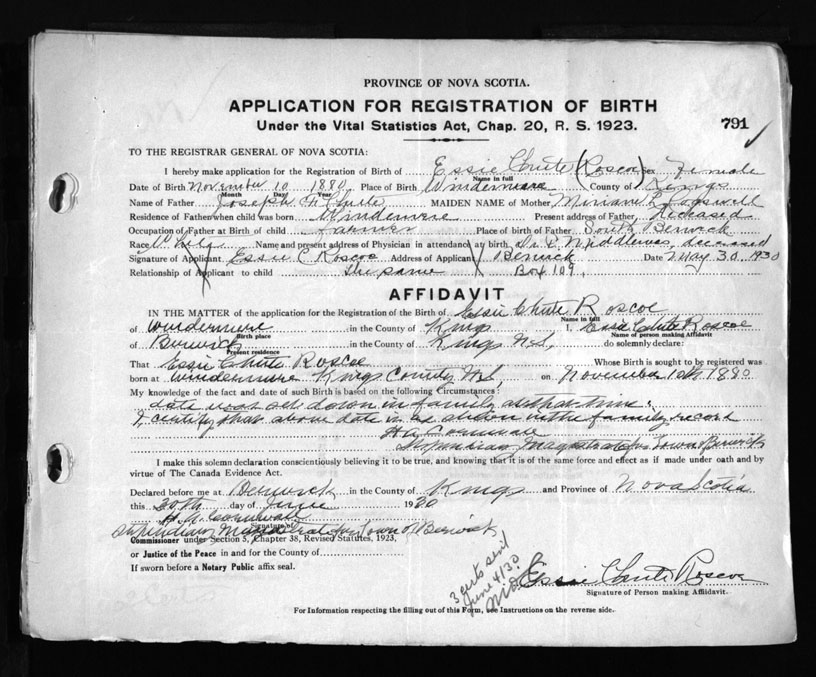 PROVINCE OF NOVA SCOTIA.
APPLICATION FOR REGISTRATION OF BIRTH
Under the Vital Statistics Act, Chap. 20, R. S. 1923.
791
TO THE REGISTRAR GENERAL OF NOVA SCOTIA:
I hereby make application for the Registration of Birth of Essie Chute (Roscoe) Sex Female
Name in full
Date of Birth November 10 1880 Place of Birth Windermere County of Kings
Month Day Year
Name of Father Joseph M Chute MAIDEN NAME of Mother Miriam
Residence of Father when child was born Windermere Present address of Father, deceased
Occupation of Father at Birth of child farmer Place of birth of Father South Berwick
Race White Name and present address of Physician in attendance at birth, Dr. Middlemas, deceased
Signature of Applicant Essie C Roscoe Address of Applicant Berwick Date May 30, 1930
Relationship of Applicant to child the same Box 109.
AFFIDAVIT
IN THE MATTER of the application for the Registration of the Birth of Essie Chute Roscoe
Name in full
of Windermere in the County of Kings I, Essie Chute Roscoe
Birth place Name of person making Affidavit
of Berwick in the County of Kings N.S, do solemnly declare:
Present residence
That Essie Chute Roscoe Whose Birth is sought to be registered was
born at Windermere Kings County N.S, on November 10th 1880
My knowledge of the fact and date of such Birth is based on the following Circumstances:
date was set down in family at that time.
I certify that above date is as written in the family record
H A Cornwall
Stipendiary Magistrate for Town of Berwick
I make this solemn declaration conscientiously believing it to be true, and knowing that it is of the same force and effect as if made under oath and by
virtue of The Canada Evidence Act.
Declared before me at Berwick in the County of Kings and Province of Nova Scotia
this day of June 1930
H. A. Cornwall
Signature of
Stipendiary Magistrate for Town of Berwick
Commissioner under Section 5, Chapter 38, Revised Statutes, 1923,
or Justice of the Peace in and for the County of
If sworn before a Notary Public affix seal.
3 certs sent
June 4/30
Essie Chute Roscoe
Signature of Person making Affidavit.
For Information respecting the filling out of this Form, see Instructions on the reverse side.